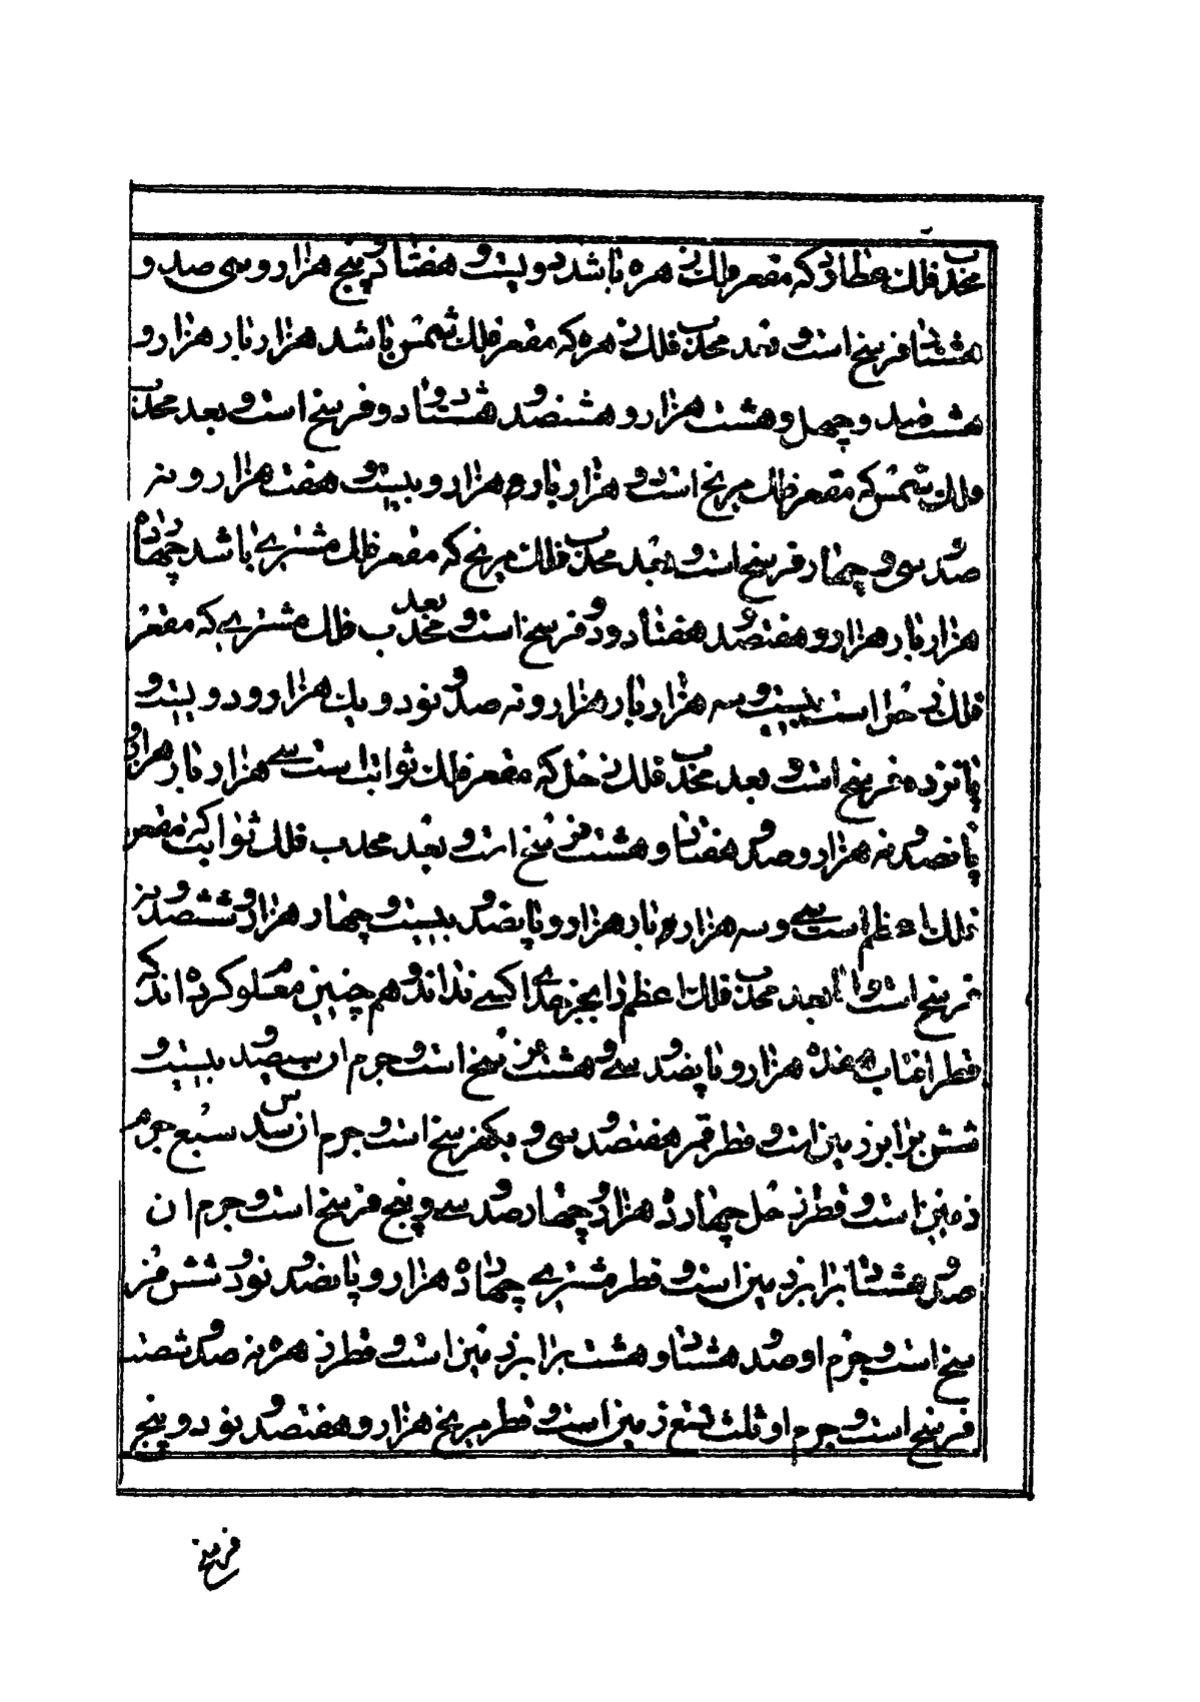 محدب فلك عطارد كه مقعر فلك زهره باشد دويست و هفتاد و پنج هزار و سی صد و
هشتاد فرسخ است و بعد محدب فلك زهره كه مقعر فلك شمس باشد هزار بار هزار و
هشت صد و چهل و هشت هزار و هشتصد و هشتاد و دو فرسخ است و بعد محدب
فلك شمس كه مقعر فلك مريخ است دو هزار بار هزار و بيست و هفت هزار و نه
صد و سی و چهار فرسخ است و بعد محدب فلك مريخ كه مقعر فلك مشتری باشد چهارده
هزار بار هزار و هفتصد هفتاد و دو فرسخ است و بعد محدب فلك مشتری كه مقعر
فلك زحل است بيست و سه هزار بار هزار و نه صد و نود و يك هزار و دويست و
پانزده فرسخ است و بعد محدب فلك زحل كه مقعر فلك ثوابت است سے هزار بار هزار و
پانصد و نه هزار و صد و هفتاد و هشت فرسخ است و بعد محدب فلك ثوابت كه مقعر
فلك اعظم است سے و سه هزار بار هزار و پانصد و بيست و چهار هزار و ششصد و نه
فرسخ است و اما بعد محدب فلك اعظم را بجز خدای كسے نداند و هم چنين معلوم كرده اند كه
قطر افتاب هفده هزار و پانصد و سے و هشت فرسخ است و جرم ان سيصد و بيست و
شش برابر زمين است و قطر قمر هفتصد و سی و يكفرسخ است و جرم ان سدس سبع جرم
زمين است و قطر زحل چهارده هزار و چهار صد و سے و پنج فرسخ است و جرم ان
صد و هشتاد برابر زمين است و قطر مشتری چهارده هزار و پانصد و نود و شش فر
سخ است و جرم او صد و هشتاد و هشت برابر زمين است و قطر زهره نه صد و شصت
فرسخ است و جرم او ثلث تسع زمين است و قطر مريخ هزار و هفتصد و نود و پنج
فرسخ